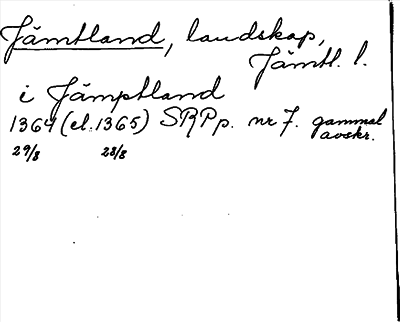 Jämtland, landskap,
Jämtl. l.
i Jämptland
1364 (el. 1365) SRPp. nr 7. gammal
avskr.
29/8 28/8